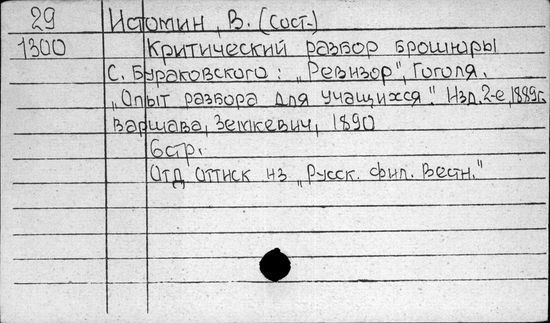 29 Истомин, В. (сост.)
1300 Критический разбор брошюры
С. Бураковского: „Ревизор", Гоголя.
„Опыт разбора для учащихся." Изд. 2-е, 1889г.
Варшава, Земкевич, 1890
6 стр.
Отд. оттиск из „Русск. фил. Вестн."